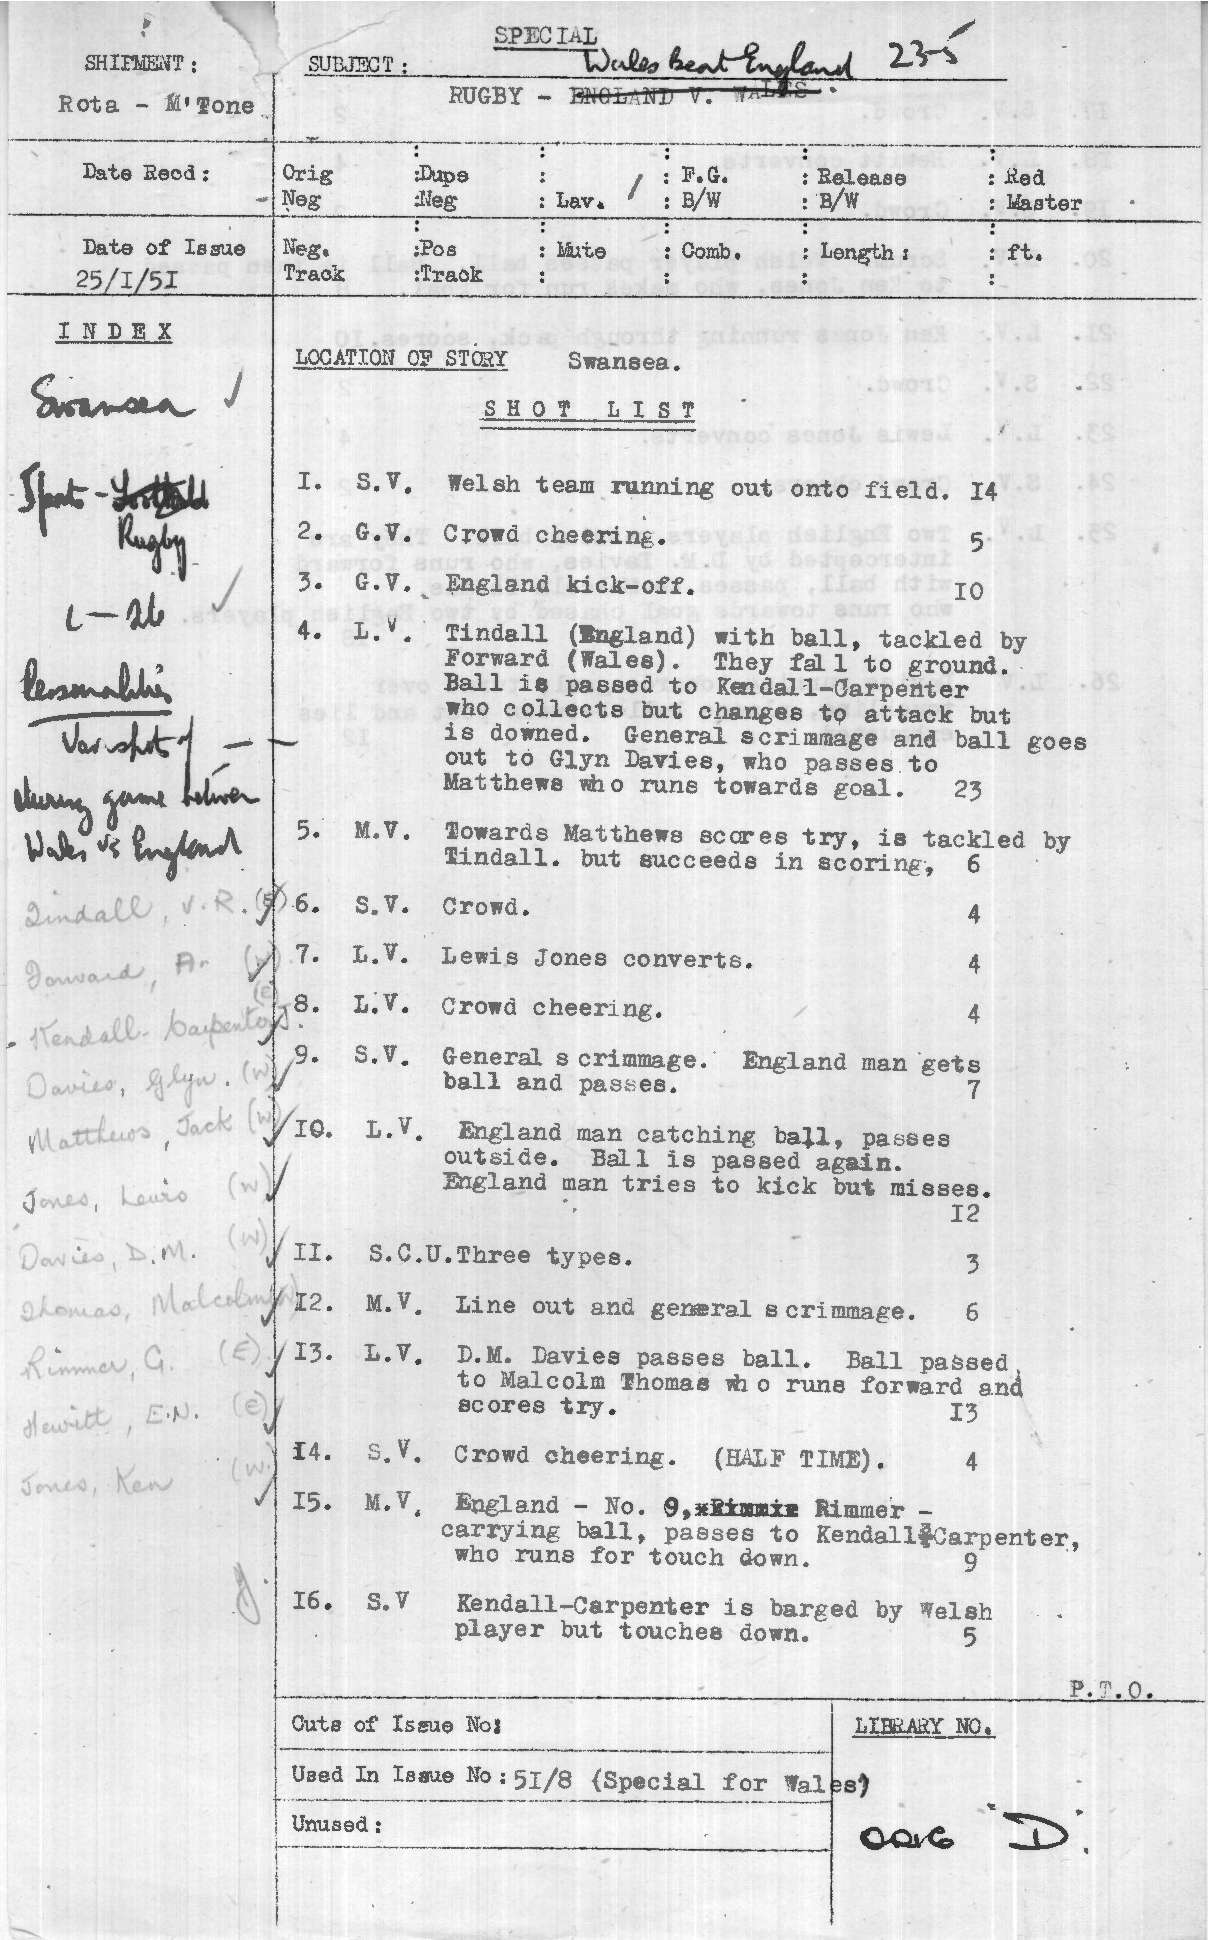 SPECIAL
SHIPMENT:
SUBJECT:
Wales Beat England 23-5
Rota - M'Tone
RUGBY - ENGLAND V. WALES.
Date Recd:
Orig :Dupe : : F.G. : Release : Red
Neg :Neg : Lav. / : B/W : B/W : Master
Date of Issue
Neg. :Pos : Mute : Comb. : Length: : ft.
25/I/5I
Track :Track : : : :
INDEX
LOCATION OF STORY Swansea.
Swansea ✓
SHOT LIST
Sport - Football
Rugby
L-26 ✓
Personalities
Var. shots of - -
during game between
Wales vs England
Tindall, V.R. (E) ✓
Forward, A. (W) ✓
Kendall-Carpenter J. (E) ✓
Davies, Glyn. (W) ✓
Matthews, Jack (W) ✓
Jones, Lewis (W) ✓
Davies, D.M. (W) ✓
Thomas, Malcolm (W) ✓
Rimmer, G. (E) ✓
Hewitt, E.N. (E) ✓
Jones, Ken (W) ✓
I. S.V. Welsh team running out onto field. I4
2. G.V. Crowd cheering. 5
3. G.V. England kick-off. IO
4. L.V. Tindall (England) with ball, tackled by
Forward (Wales). They fall to ground.
Ball is passed to Kendall-Carpenter
who collects but changes to attack but
is downed. General scrimmage and ball goes
out to Glyn Davies, who passes to
Matthews who runs towards goal. 23
5. M.V. Towards Matthews scores try, is tackled by
Tindall. but succeeds in scoring, 6
6. S.V. Crowd. 4
7. L.V. Lewis Jones converts. 4
8. L.V. Crowd cheering. 4
9. S.V. General scrimmage. England man gets
ball and passes. 7
IO. L.V. England man catching ball, passes
outside. Ball is passed again.
England man tries to kick but misses.
I2
II. S.C.U. Three types. 3
I2. M.V. Line out and general scrimmage. 6
I3. L.V. D.M. Davies passes ball. Ball passed
to Malcolm Thomas who runs forward and
scores try. I3
I4. S.V. Crowd cheering. (HALF TIME). 4
I5. M.V. England - No. 9, Rimmer -
carrying ball, passes to Kendall-Carpenter,
who runs for touch down. 9
I6. S.V Kendall-Carpenter is barged by Welsh
player but touches down. 5
P.T.O.
Cuts of Issue No:
LIBRARY NO.
Used In Issue No: 5I/8 (Special for Wales)
Unused: